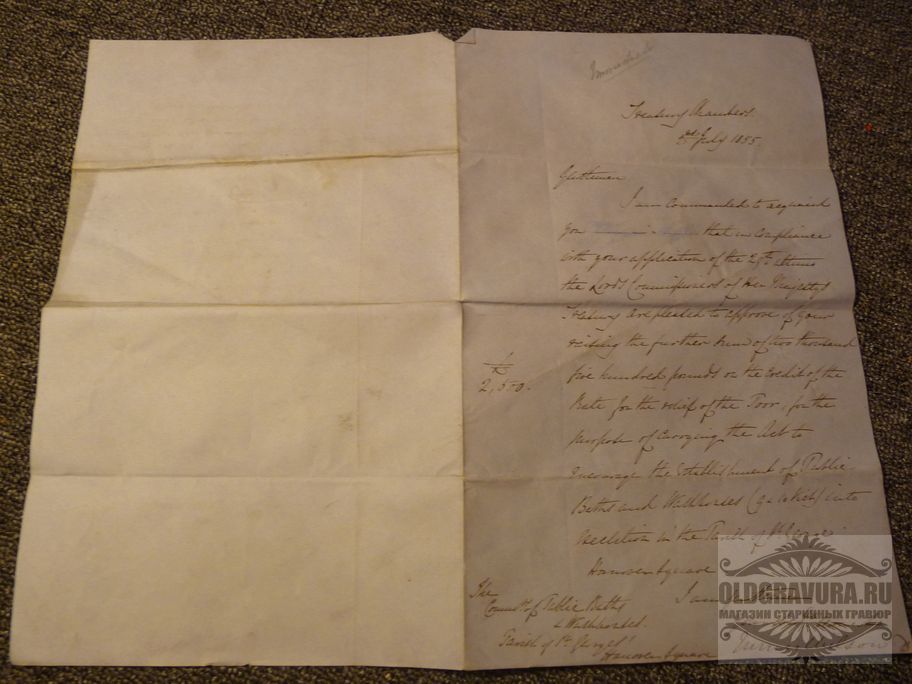 Immediate
Treasury Chambers.
2nd July 1855.
Gentlemen
I am Commanded to acquaint
you that in Compliance
with your application of the 25th ultimo
the Lords Commissioners of Her Majesty's
Treasury are pleased to approve of your
raising the further Sum of two thousand
£
2,500.
five hundred pounds on the Credit of the
Rate for the relief of the Poor, for the
purpose of carrying the Act to
Encourage the Establishment of Public
Baths and Washhouses (9 & 10 Vict) into
execution in the Parish of St George
Hanover Square
I am
The
Committ of Public Baths
& Washhouses.
Parish of St George's
Hanover Square
OLDGRAVURA.RU
МАГАЗИН СТАРИННЫХ ГРАВЮР